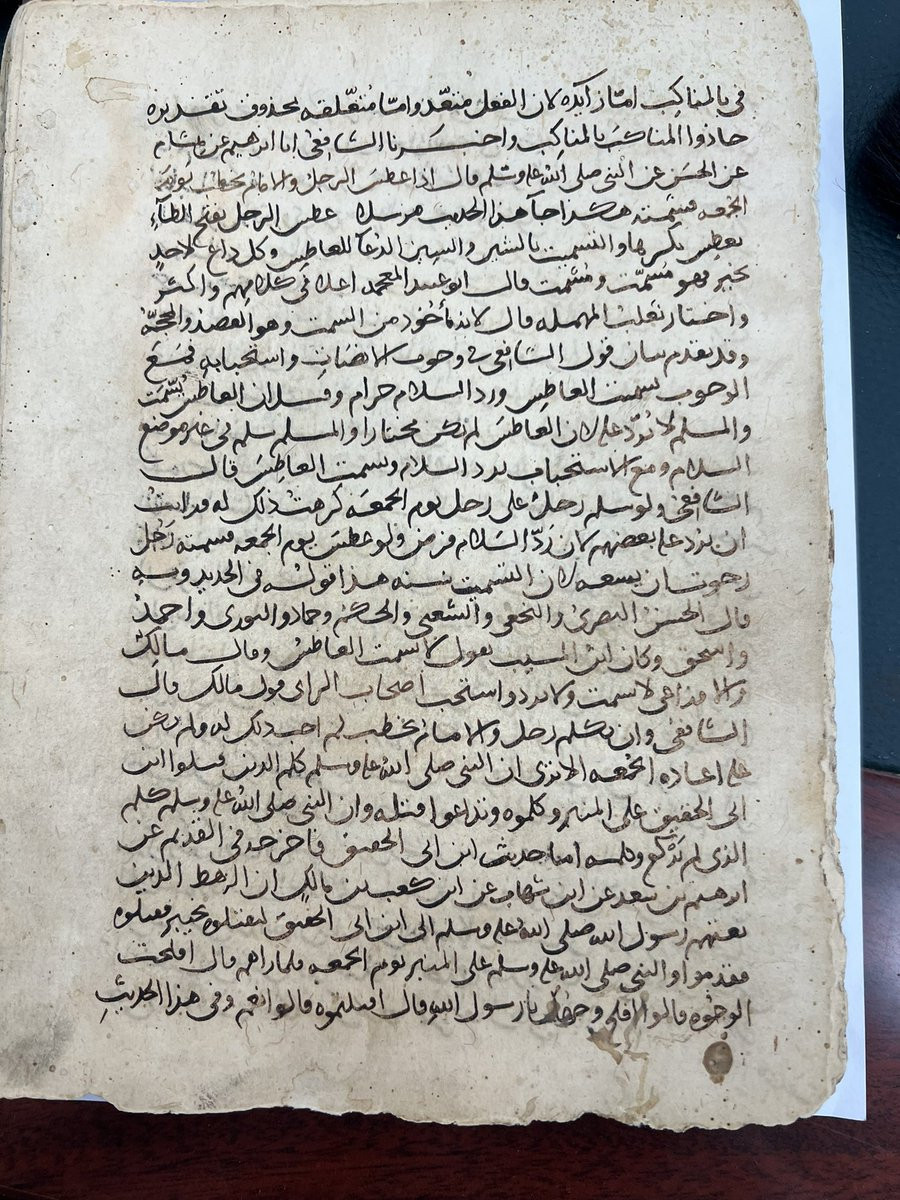 في بالمناكب اما زايده لان الفعل متعد واما متعلقه بمحذوف تقديره
حاذوا المناكب بالمناكب واخبرنا الشافعي انا ابرهيم عن هشام
عن الحسن عن النبي صلى الله عليه وسلم قال اذا عطس الرجل والامام يخطب يوم
الجمعه فشمته هكذا جآ هذا الحديث مرسلا عطس الرجل بفتح الطآء
يعطس بكسرها والتشميت بالشين والسين الدعآ للعاطس وكل داع لاحد
بخير فهو مسمت ومشمت قال ابو عبيد المعجمه اعلا في كلامهم واكثر
واختار ثعلب المهمله قال لانه مأخوذ من السمت وهو القصد والمحجة
وقد تقدم بيان قول الشافعي في وجوب الانصات واستحبابه فمع
الوجوب تشميت العاطس ورد السلام حرام وقيل ان العاطس يشمت
والمسلم لا يرد عليه لان العاطس لم يكن مختارا والمسلم سلم في غير موضع
السلام ومع الاستحباب يرد السلام ويشمت العاطس قال
الشافعي ولو سلم رجل على رجل يوم الجمعه كرهت ذلك له ورايت
ان يرد عليه بعضهم لان رد السلام فرض ولو عطس يوم الجمعه فشمته رجل
رجوت ان يسعه لان التشميت سنه هذا قوله في الجديد وبه
قال الحسن البصري والنخعي والشعبي والحكم وحماد والثوري واحمد
واسحق وكان ابن المسيب يقول لا تشمت العاطس وقال مالك
والاوزاعي لا يشمت ولا يرد واستحب اصحاب الراي قول مالك قال
الشافعي وان تكلم رجل والامام يخطب لم احب ذلك له ولم يكن
عليه اعاده الجمعه الا ترى ان النبي صلى الله عليه وسلم كلم الذين قتلوا ابن
ابي الحقيق على المنبر وكلموه وتداعوا قتله وان النبي صلى الله عليه وسلم كلم
الذي لم يركع وكلمه اما حديث ابن ابي الحقيق فاخرجه في القديم عن
ابرهيم بن سعد عن ابن شهاب عن ابن كعب بن مالك ان الرهط الذين
بعثهم رسول الله صلى الله عليه وسلم الى ابن ابي الحقيق ليقتلوه بخيبر فقتلوه
فقدموا والنبي صلى الله عليه وسلم على المنبر يوم الجمعه فلما راهم قال افلحت
الوجوه قالوا افلح وجهك يا رسول الله قال اقتلتموه قالوا نعم وفي هذا الحديث